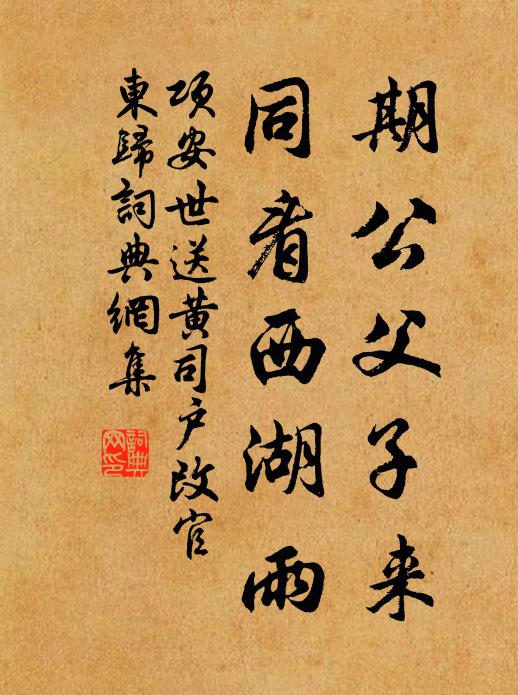 期公父子来
同看西湖雨
項安世送黄司户改官
東歸詞典網集
詞典網印